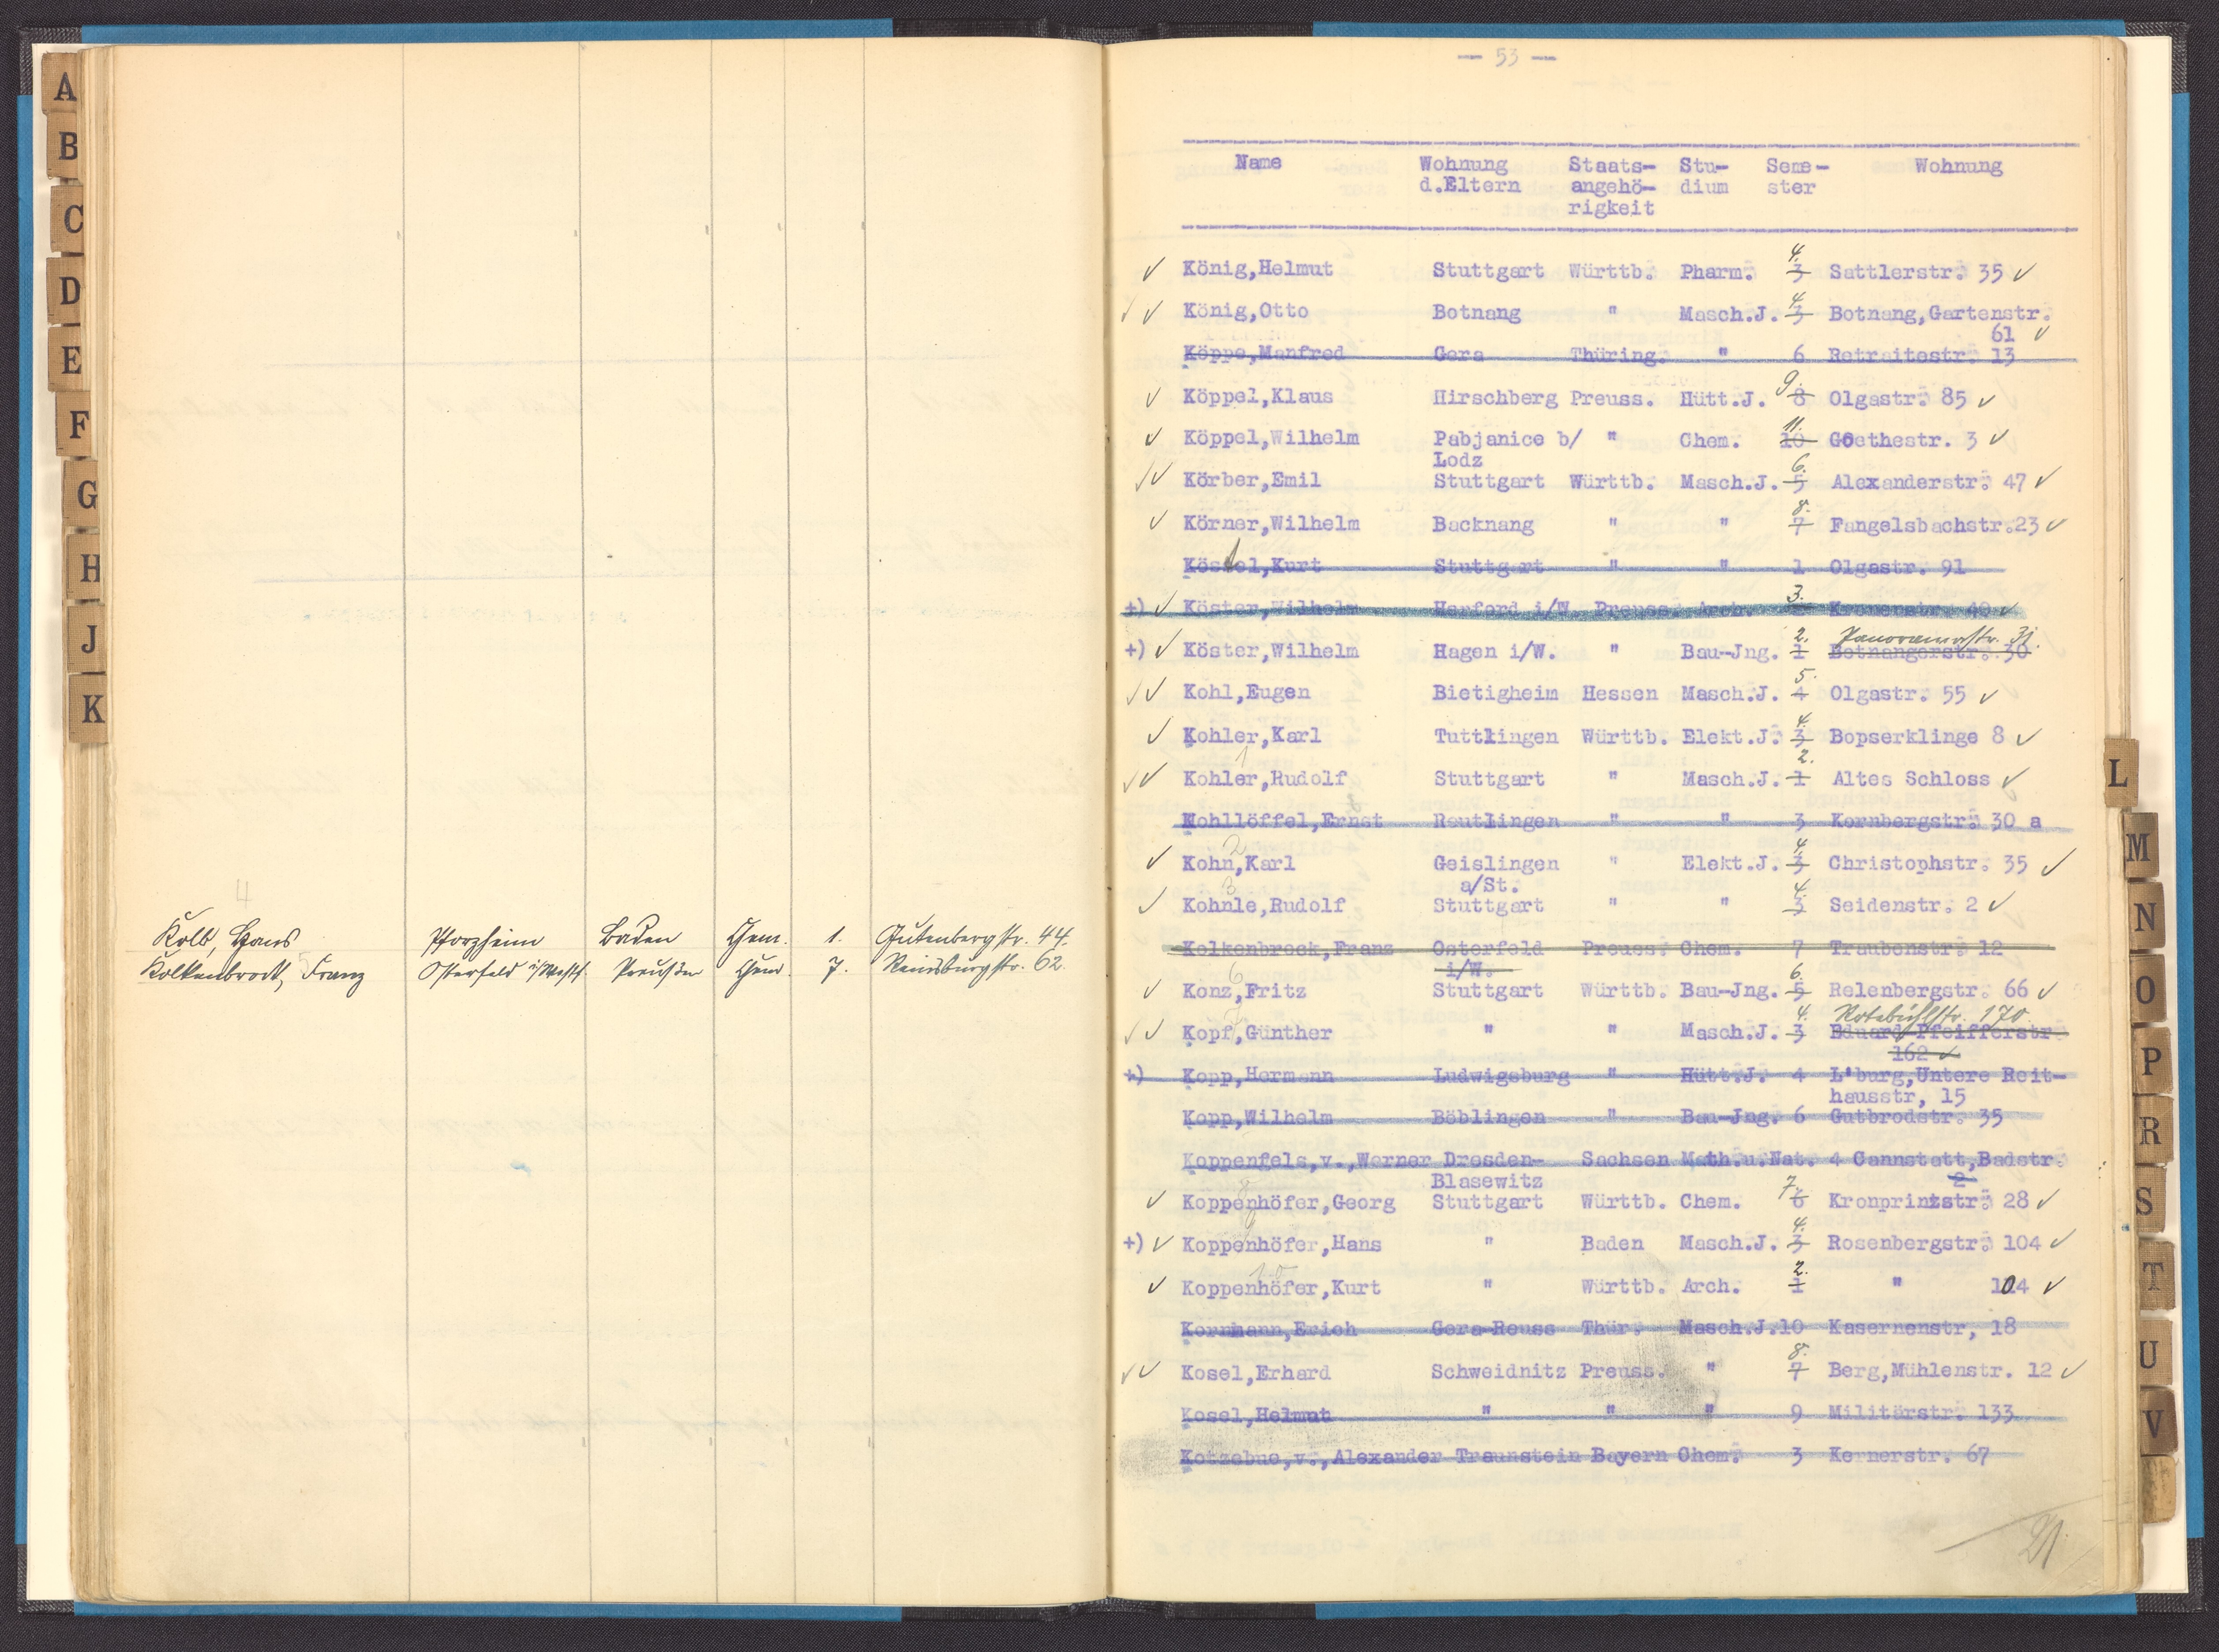 A
B
C
D
E
F
G
H
J
K
4
Kolb, Hans Pforzheim Baden Chem. 1. Gutenbergstr. 44.
Kolkenbrock, Franz Osterfeld i/Westf. Preußen Chem. 7. Reinsburgstr. 62.
— 53 —
Name Wohnung Staats- Stu- Seme- Wohnung
d.Eltern angehö- dium ster
rigkeit
✓ König,Helmut Stuttgart Württb. Pharm. 3 4. Sattlerstr. 35 ✓
✓ ✓ König,Otto Botnang " Masch.J. 3 4. Botnang,Gartenstr.
61 ✓
Köppe,Manfred Gera Thüring. " 6 Retraitestr. 13
✓ Köppel,Klaus Hirschberg Preuss. Hütt.J. 8 9. Olgastr. 85 ✓
✓ Köppel,Wilhelm Pabjanice b/ " Chem. 10 11. Goethestr. 3 ✓
Lodz
✓ ✓ Körber,Emil Stuttgart Württb. Masch.J. 5 6. Alexanderstr. 47 ✓
✓ Körner,Wilhelm Backnang " " 7 8. Fangelsbachstr.23 ✓
Köstel,Kurt Stuttgart " " 1 Olgastr. 91
+) ✓ Köster,Wilhelm Herford i/W. Preuss. Arch. 3. Kronenstr. 40 ✓
Panoramastr. 31.
+) ✓ Köster,Wilhelm Hagen i/W. " Bau-Jng. 1 2. Botnangerstr. 30
✓ ✓ Kohl,Eugen Bietigheim Hessen Masch.J. 4 5. Olgastr. 55 ✓
✓ Kohler,Karl Tuttlingen Württb. Elekt.J. 3 4. Bopserklinge 8 ✓
1
✓ ✓ Kohler,Rudolf Stuttgart " Masch.J. 1 2. Altes Schloss ✓
Kohllöffel,Ernst Reutlingen " " 3 Kornbergstr. 30 a
2
✓ Kohn,Karl Geislingen " Elekt.J. 3 4. Christophstr. 35 ✓
3 a/St.
✓ Kohnle,Rudolf Stuttgart " " 3 4. Seidenstr. 2 ✓
Kolkenbrock,Franz Osterfeld Preuss. Chem. 7 Traubenstr. 12
6 i/W.
✓ Konz,Fritz Stuttgart Württb. Bau-Jng. 5 6. Relenbergstr. 66 ✓
7 Rotebühlstr. 170.
✓ ✓ Kopf,Günther " " Masch.J. 3 4. Eduard Pfeifferstr.
162 ✓
+) Kopp,Hermann Ludwigsburg " Hütt.J. 4 L'burg,Untere Reit-
hausstr, 15
Kopp,Wilhelm Böblingen " Bau-Jng. 6 Gutbrodstr. 35
Koppenfels,v.,Werner Dresden- Sachsen Math.u.Nat. 4 Cannstatt,Badstr.
8 Blasewitz 2
✓ Koppenhöfer,Georg Stuttgart Württb. Chem. 6 7. Kronprinzstr. 28 ✓
9
+) ✓ Koppenhöfer,Hans " Baden Masch.J. 3 4. Rosenbergstr. 104 ✓
10
✓ Koppenhöfer,Kurt " Württb. Arch. 1 2. " 104 ✓
Kormann,Erich Gera-Reuss Thür. Masch.J. 10 Kasernenstr, 18
✓ ✓ Kosel,Erhard Schweidnitz Preuss. " 7 8. Berg,Mühlenstr. 12 ✓
Kosel,Helmut " " " 9 Militärstr. 133
Kotzebue,v.,Alexander Traunstein Bayern Chem. 3 Kernerstr. 67
21
L
M
N
O
P
R
S
T
U
V